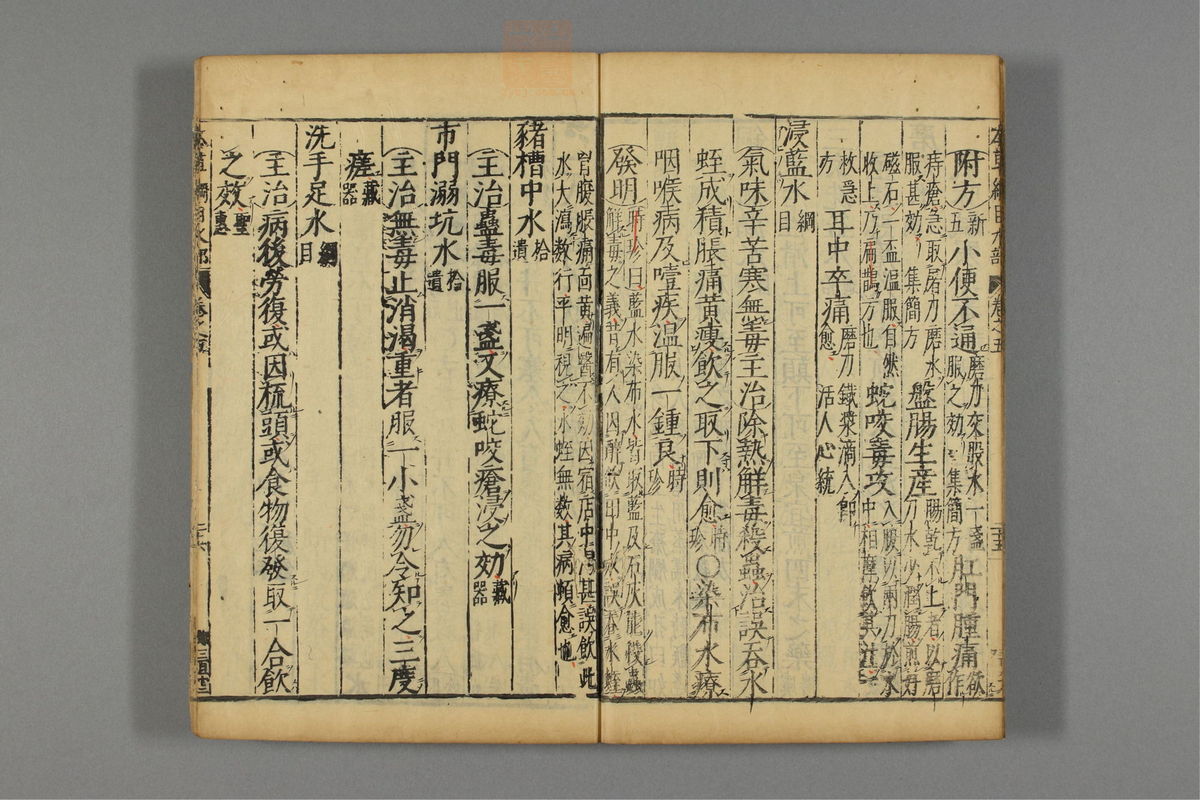 附方 新五 小便不通 磨刀交股水一盞服之効 集簡方 肛門腫痛 欲作
痔瘡急取屠刀磨水服甚効 集簡方 盤腸生産 腸乾不上者以磨刀水少潤腸煎好
磁石一盃温服自然收上乃扁鵲方也 蛇咬毒攻 入腹以兩刀於水中相摩飲其汁
救急方 耳中卒痛 磨刀鐵漿滴入即愈 活人心統
浸藍水 綱目
氣味辛苦寒無毒主治除熱解毒殺蟲治誤吞水
蛭成積脹痛黃瘦飲之取下則愈 時珍 〇染布水療
咽喉病及噎疾温服一鍾良 時珍
發明 時珍曰藍水染布水皆取藍及石灰能殺蟲
解毒之義昔有人因醉飲田中水誤吞水蛭
胃腹脹痛面黃遍醫不効因宿店中渴甚誤飲此
水大瀉數行平明視之水蛭無數其病頓愈也
豬槽中水 拾遺
主治蠱毒服一盞又療蛇咬瘡浸之効 藏器
市門溺坑水 拾遺
主治無毒止消渴重者服一小盞勿令知之三度
瘥 藏器
洗手足水 綱目
主治病後勞復或因梳頭或食物復發取一合飲
之效 聖惠